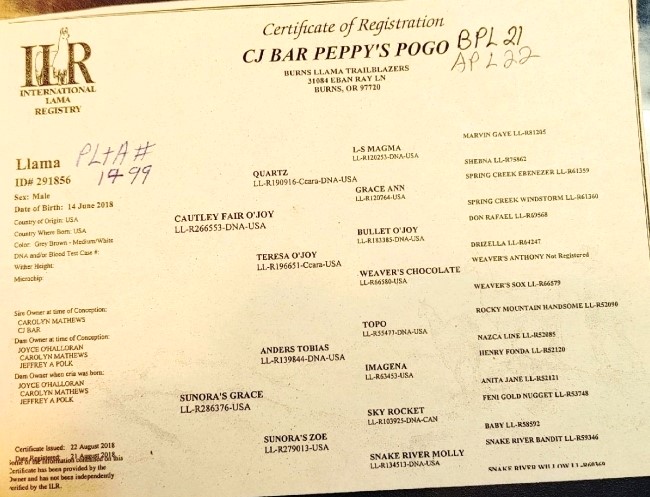 Certificate of Registration
CJ BAR PEPPY'S POGO
BPL 21
APL 22
BURNS LLAMA TRAILBLAZERS
31084 EBAN RAY LN
BURNS, OR 97720
ILR
INTERNATIONAL
LAMA
REGISTRY
Llama
PL+A #
1499
ID# 291856
Sex: Male
Date of Birth: 14 June 2018
Country of Origin: USA
Country Where Born: USA
Color: Grey Brown - Medium/White
DNA and/or Blood Test Case #:
Wither Height:
Microchip:
Sire Owner at time of Conception:
CAROLYN MATHEWS
CJ BAR
Dam Owner at time of Conception:
JOYCE O'HALLORAN
CAROLYN MATHEWS
JEFFREY A POLK
Dam Owner when cria was born:
JOYCE O'HALLORAN
CAROLYN MATHEWS
JEFFREY A POLK
Certificate Issued: 22 August 2018
Date Registered: 21 August 2018
Certificate has been provided by the
Owner and has not been independently
verified by the ILR.
CAUTLEY FAIR O'JOY
LL-R266553-DNA-USA
SUNORA'S GRACE
LL-R286376-USA
QUARTZ
LL-R190916-Ccara-DNA-USA
TERESA O'JOY
LL-R196651-Ccara-USA
ANDERS TOBIAS
LL-R139844-DNA-USA
SUNORA'S ZOE
LL-R279013-USA
L-S MAGMA
LL-R120253-DNA-USA
GRACE ANN
LL-R120764-USA
BULLET O'JOY
LL-R183385-DNA-USA
WEAVER'S CHOCOLATE
LL-R66580-USA
TOPO
LL-R55477-DNA-USA
IMAGENA
LL-R63453-USA
SKY ROCKET
LL-R103925-DNA-CAN
SNAKE RIVER MOLLY
LL-R134513-DNA-USA
MARVIN GAYE LL-R81205
SHEBNA LL-R75862
SPRING CREEK EBENEZER LL-R61359
SPRING CREEK WINDSTORM LL-R61360
DON RAFAEL LL-R69568
DRIZELLA LL-R64247
WEAVER'S ANTHONY Not Registered
WEAVER'S SOX LL-R66579
ROCKY MOUNTAIN HANDSOME LL-R52090
NAZCA LINE LL-R52085
HENRY FONDA LL-R52120
ANITA JANE LL-R52121
FENI GOLD NUGGET LL-R53748
BABY LL-R58592
SNAKE RIVER BANDIT LL-R59346
SNAKE RIVER WILLOW